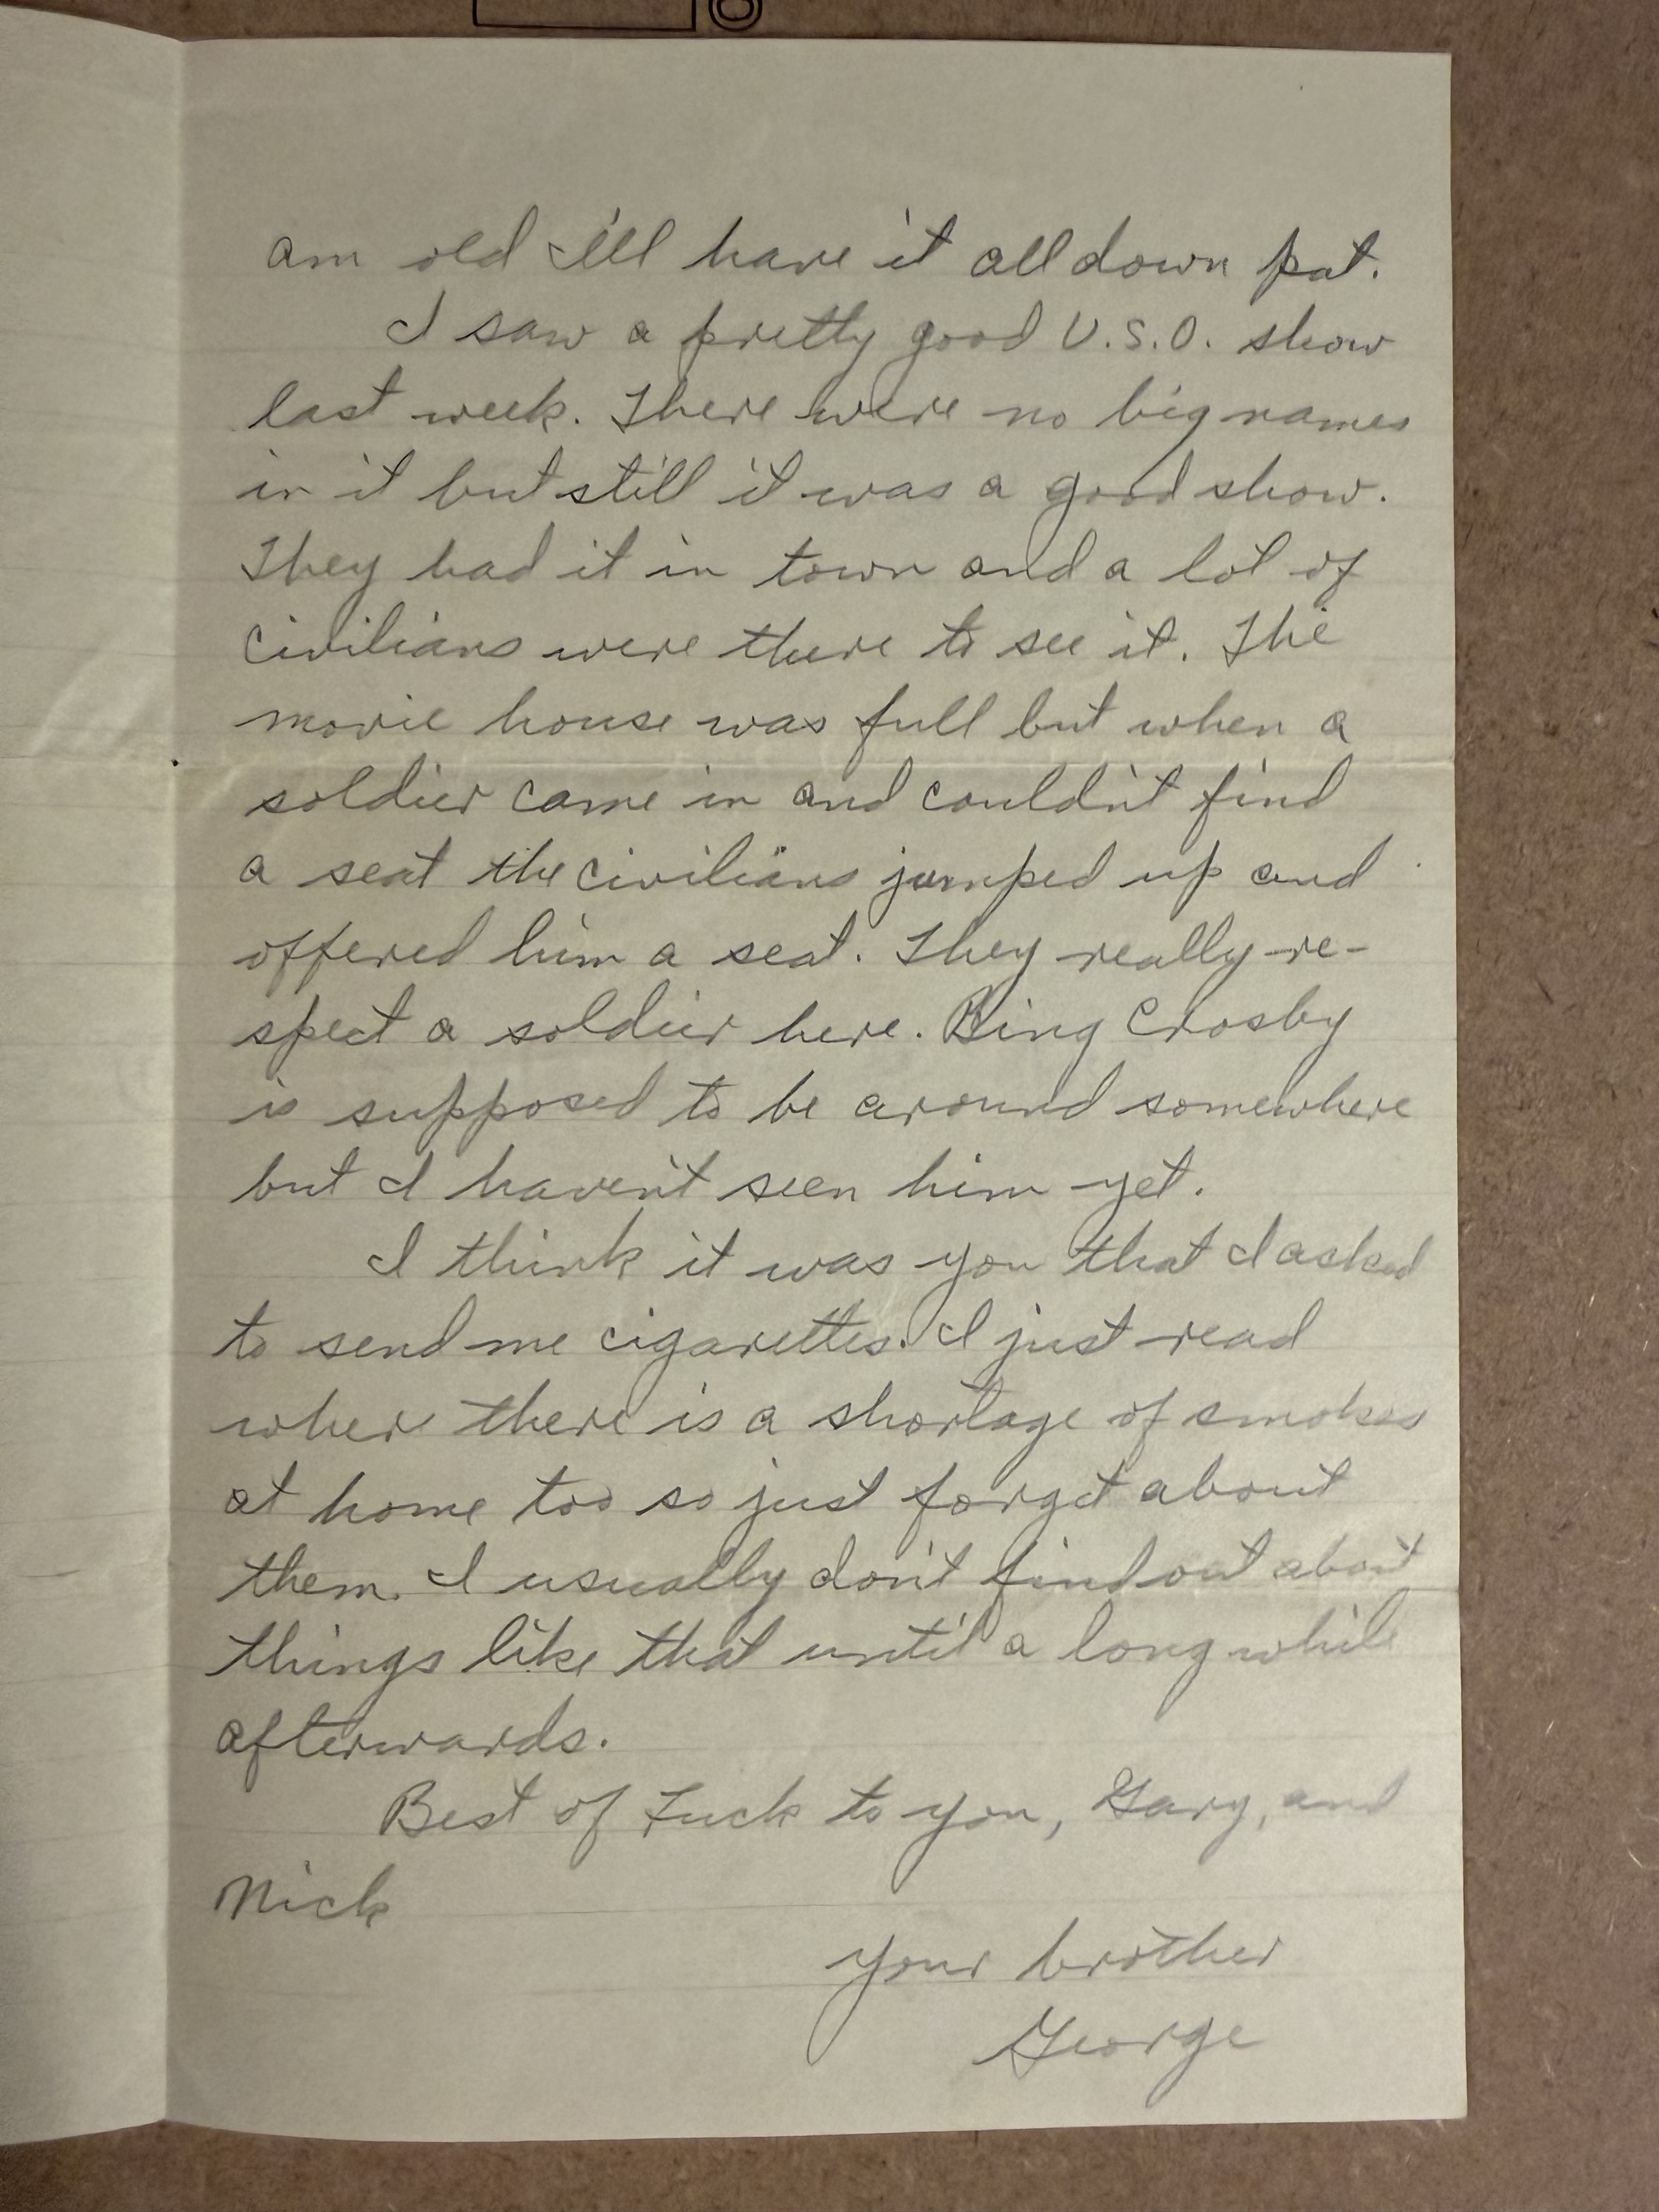 am old I'll have it all down pat.
I saw a pretty good U.S.O. show
last week. There were no big names
in it but still it was a good show.
They had it in town and a lot of
civilians were there to see it. The
movie house was full but when a
soldier came in and couldn't find
a seat the civilians jumped up and
offered him a seat. They really re-
spect a soldier here. Bing Crosby
is supposed to be around somewhere
but I haven't seen him yet.
I think it was you that I asked
to send me cigarettes. I just read
where there is a shortage of smokes
at home too so just forget about
them. I usually don't find out about
things like that until a long while
afterwards.
Best of Luck to you, Gary, and
Nick
your brother
George